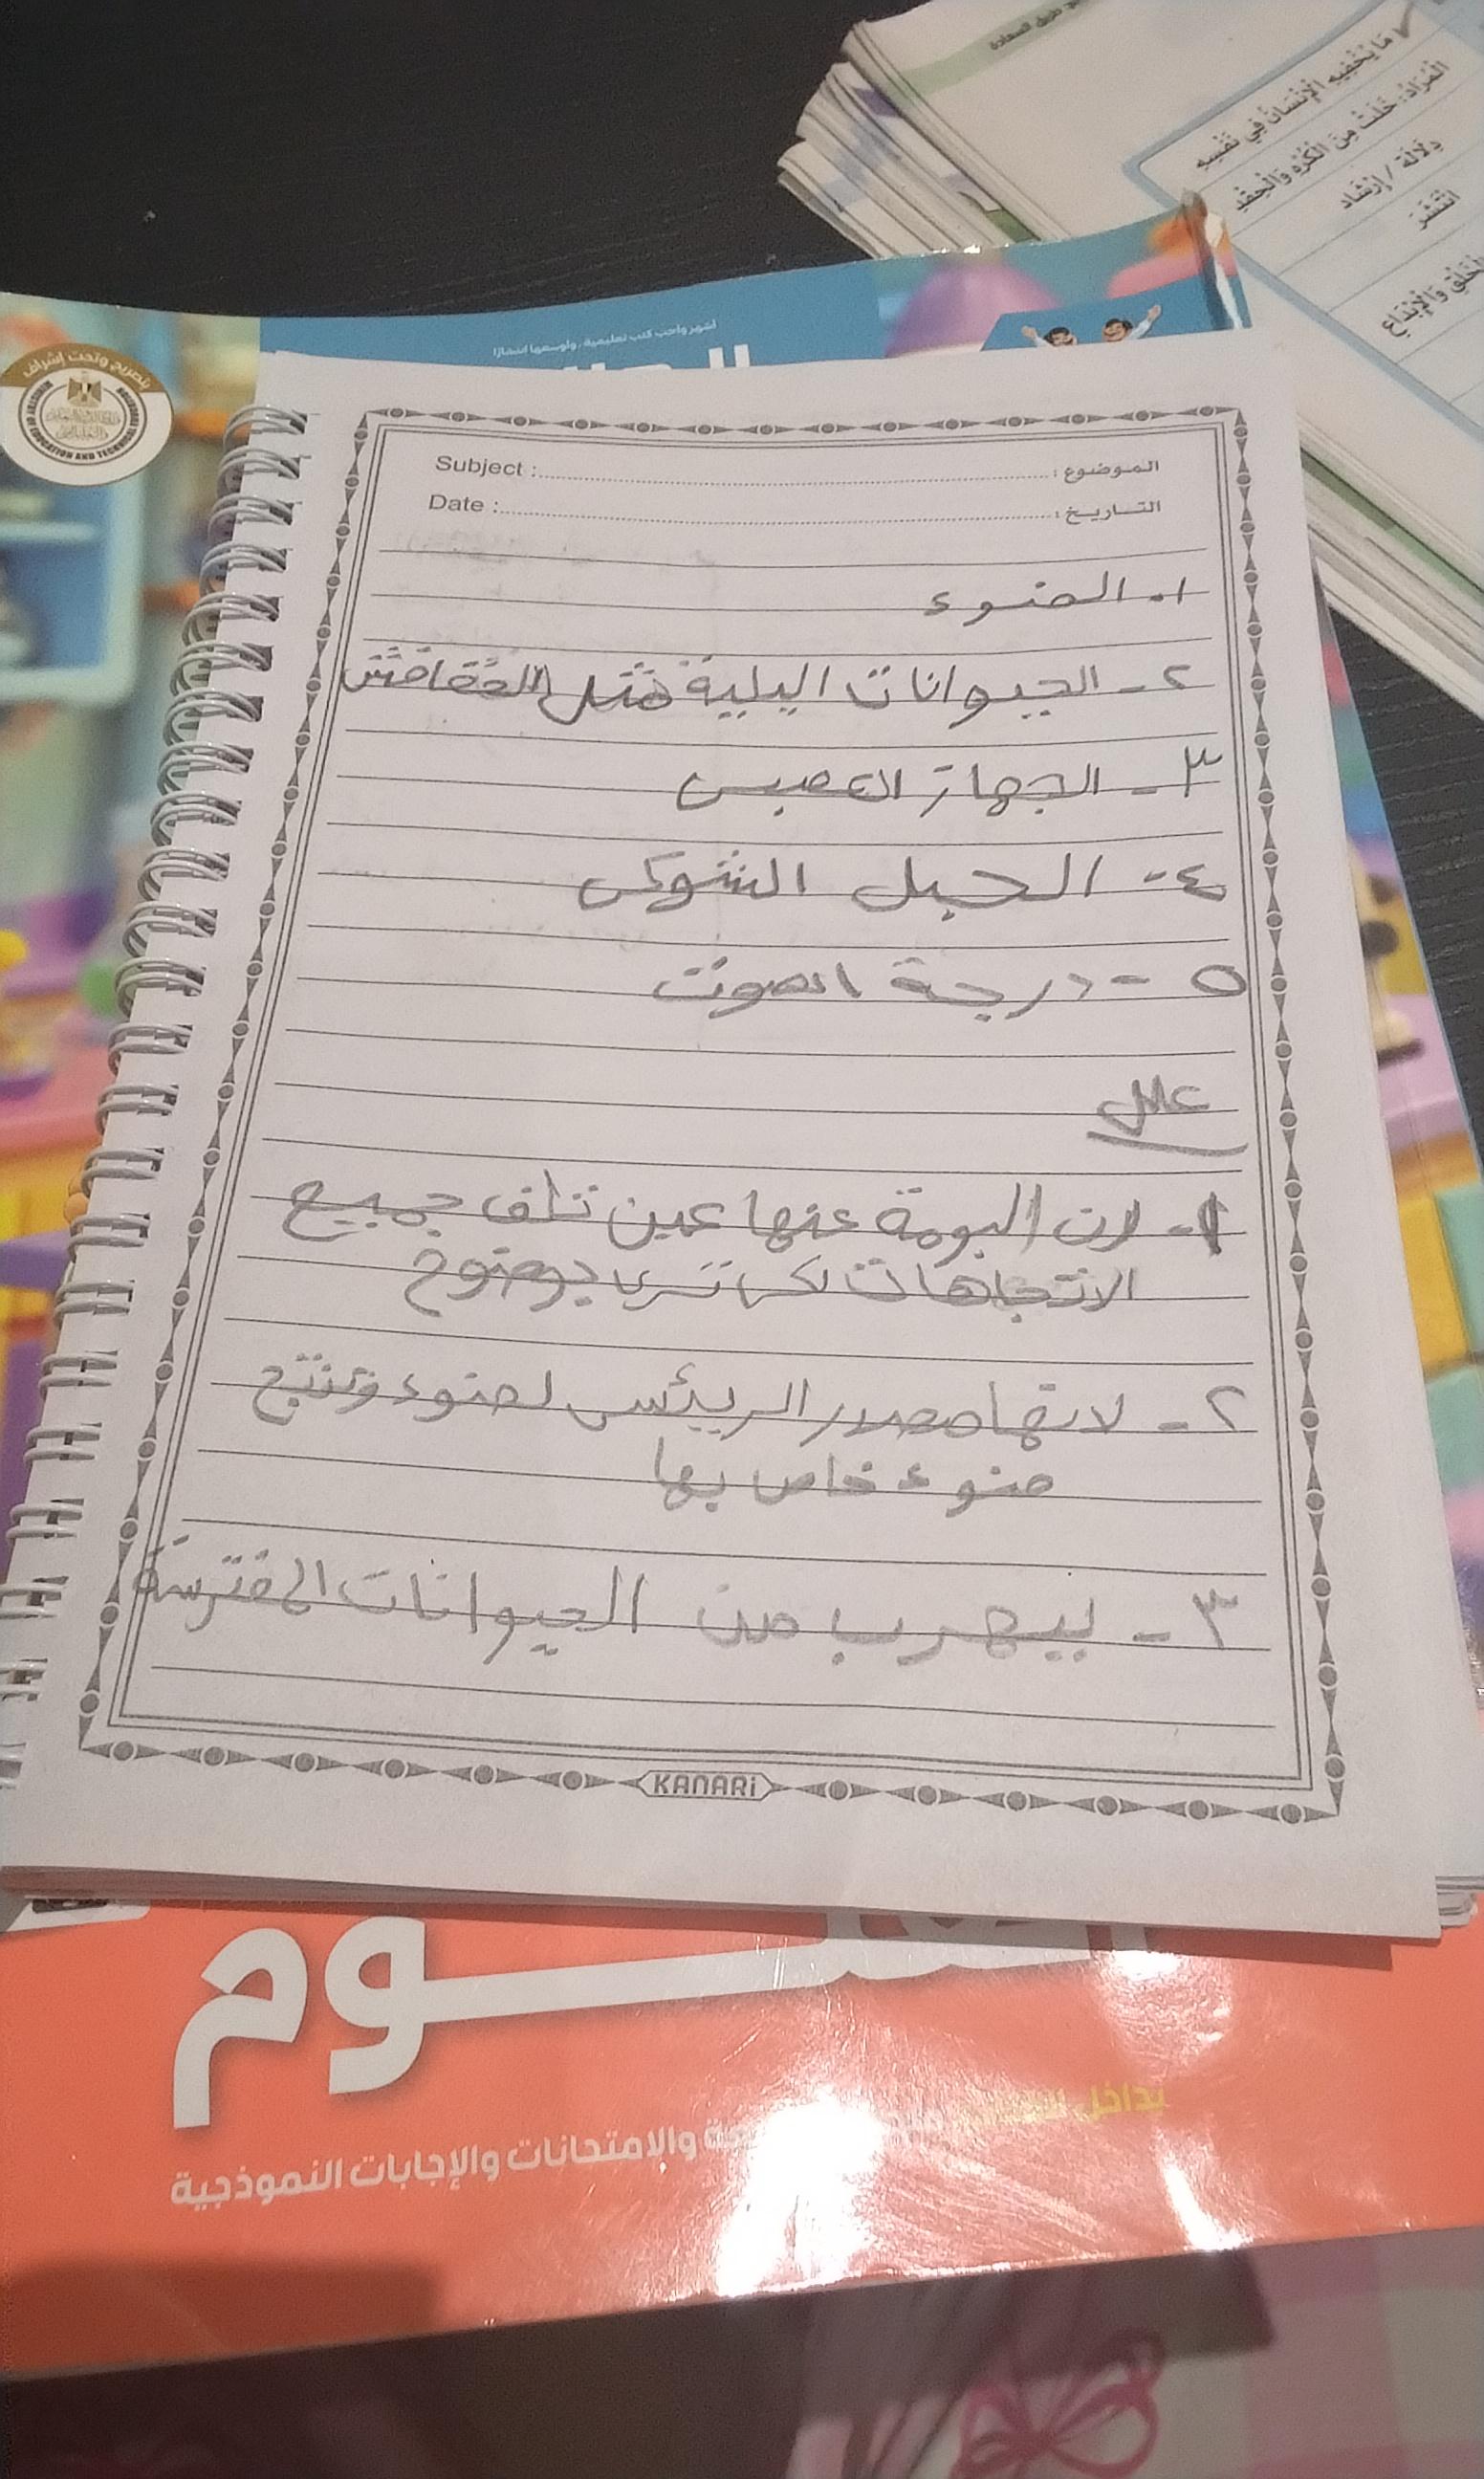 طريق السعادة
مَا يُخْفِيهِ الْإِنْسَانُ فِي نَفْسِهِ
الْمُرَادُ: خَلَتْ مِنَ الْكُرْهِ وَالْحِقْدِ
دِلَالَة / إِرْشَاد
انْتَشَرَ
الْخَلْقِ وَالْإِبْدَاعِ
أشهر وأحب كتب تعليمية، وأوسعها انتشارًا
بتصريح وتحت إشراف
MINISTRY OF EDUCATION AND TECHNICAL EDUCATION
Subject : الموضوع :
Date : التاريخ :
١. الضوء
٢ - الحيوانات اليلية مثل الخفافش
٣ - الجهاز العصبى
٤ - الحبل الشوكى
٥ - درجة الصوت
علل
١- لان البومة عنها عين تلف جميع
الاتجاهات لكى ترى بوضوح
٢ - لانها مصدر الريئسى لضوء وتنتج
ضوء خاص بها
٣ - ليهرب من الحيوانات المفترسة
KANARi
بداخل
والامتحانات والإجابات النموذجية